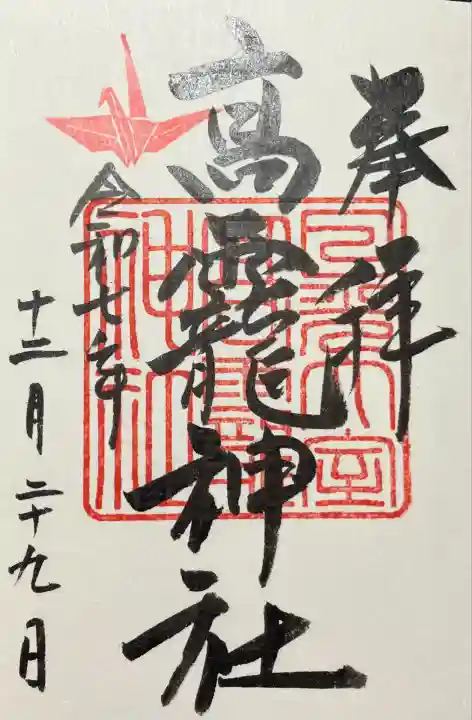 奉拝
高靇神社
令和七年
十二月二十九日